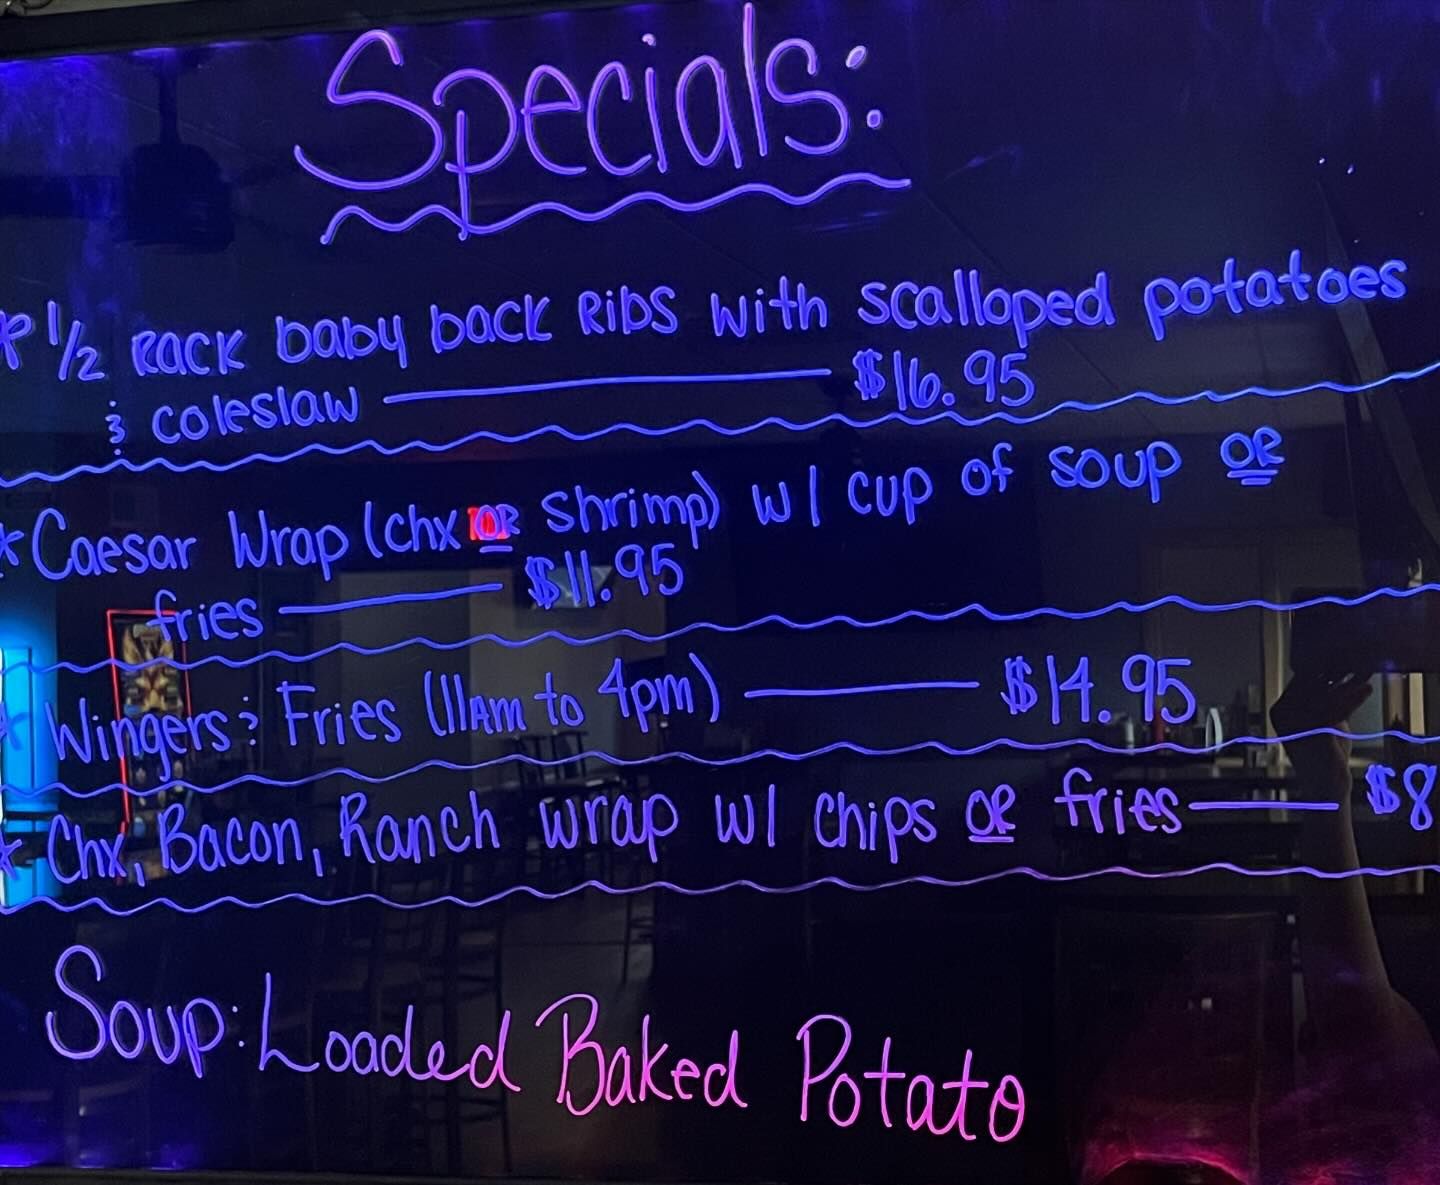 Specials:
* 1/2 Rack baby back Ribs with scalloped potatoes
& coleslaw $16.95
* Caesar Wrap (chx OR Shrimp) w/ cup of soup OR
fries $11.95
* Wingers & Fries (11am to 4pm) $14.95
* Chx, Bacon, Ranch wrap w/ chips OR fries $8
Soup: Loaded Baked Potato